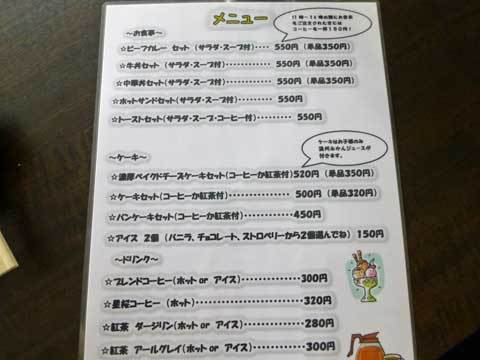 メニュー
11時～14時の間にお食事
をご注文された方には
コーヒーを一杯150円！
～お食事～
☆ビーフカレー セット（サラダ・スープ付）････ 550円（単品350円）
☆牛丼セット（サラダ・スープ付）･･････････ 550円（単品350円）
☆中華丼セット（サラダ・スープ付）･･････ 550円（単品350円）
☆ホットサンドセット（サラダ・スープ付）････ 550円
☆トーストセット（サラダ・スープ・コーヒー付）･････････ 550円
ケーキはお子様のみ
温州みかんジュースが
付きます。
～ケーキ～
☆濃厚ベイクドチーズケーキセット（コーヒーか紅茶付）520円（単品350円）
☆ケーキセット（コーヒーか紅茶付）･･････････ 500円（単品320円）
☆パンケーキセット（コーヒーか紅茶付）･･････････450円
☆アイス 2個（バニラ、チョコレート、ストロベリーから2個選んでね）150円
～ドリンク～
☆ブレンドコーヒー（ホット or アイス）･･････････300円
☆星桜コーヒー（ホット）･･････････････････320円
☆紅茶 ダージリン（ホット or アイス）･･････････280円
☆紅茶 アールグレイ（ホット or アイス）･･････････300円